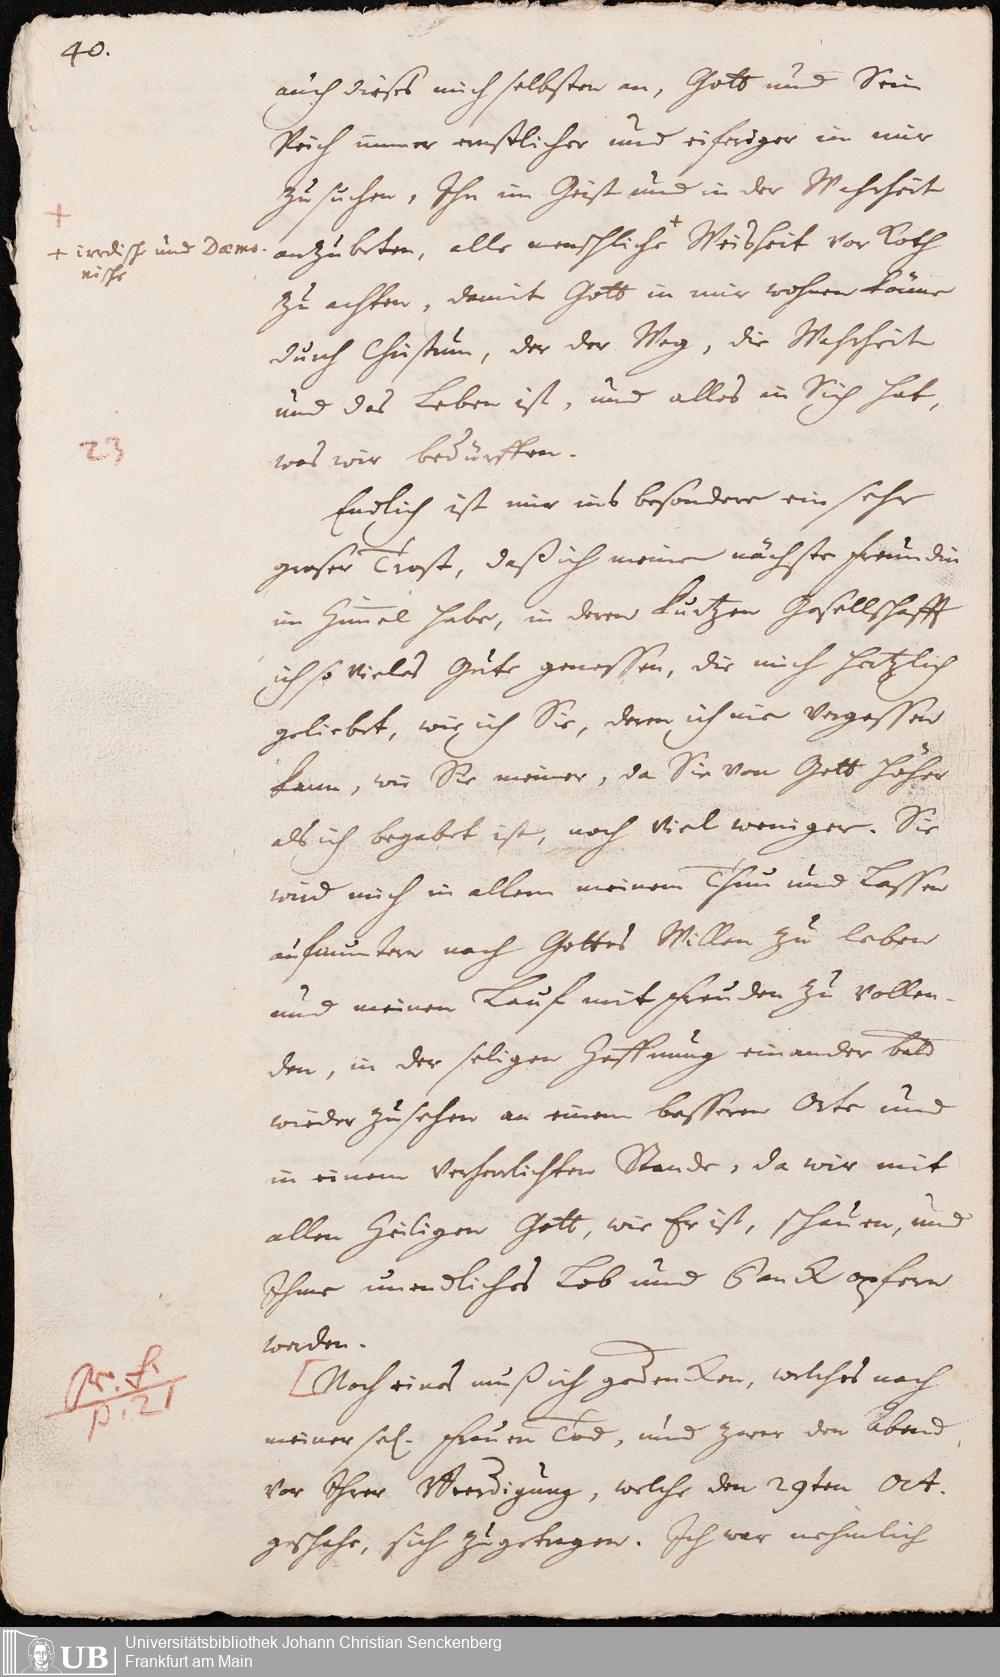 40.
auch dieses mich selbsten an, Gott und Sein
Reich immer ernstlicher und eiferiger in mir
zu suchen, Ihn im Geist und in der Wahrheit
+
+ irrdische und Dæmo-
nische
anzubeten, alle menschliche + Weisheit vor Koth
zu achten, damit Gott in mir wohnen könne
durch Christum, der der Weg, die Wahrheit
und das Leben ist, und alles in Sich hat,
23
was wir bedürffen.
Endlich ist mir ins besondere ein sehr
groser Trost, daß ich meine nächste Freundin
im Himel habe, in deren kurtzen Gesellschafft
ich so vieles Gute genossen, die mich hertzlich
geliebet, wie ich Sie, deren ich nie vergessen
kann, wie Sie meiner, da Sie von Gott höher
als ich begabet ist, noch viel weniger. Sie
wird mich in allem meinem Thun und Lassen
aufmuntern nach Gottes Willen zu leben
und meinen Lauf mit Freuden zu vollen-
den, in der seligen Hoffnung einander bald
wieder zusehen an einem besseren Orte und
in einem verherrlichten Stande, da wir mit
allen Heiligen Gott, wie Er ist, schauen, und
Ihme unendliches Lob und Danck opfern
werden.
p. 21
[Noch eines muß ich gedencken, welches nach
meiner sel. Frauen Tod, und zwar den Abend
vor Ihrer Beerdigung, welche den 29ten Oct.
geschahe, sich zugetragen. Ich war nehmlich
UB Universitätsbibliothek Johann Christian Senckenberg
Frankfurt am Main